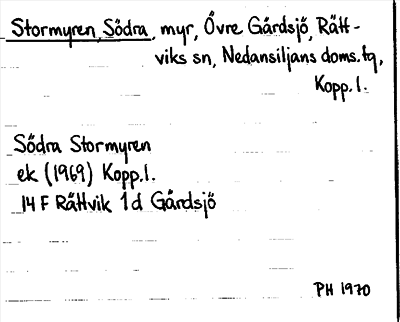 Stormyren, Södra, myr, Övre Gårdsjö, Rätt-
viks sn, Nedansiljans doms.tg,
Kopp.l.
Södra Stormyren
ek (1969) Kopp.l.
14 F Rättvik 1d Gårdsjö
PH 1970